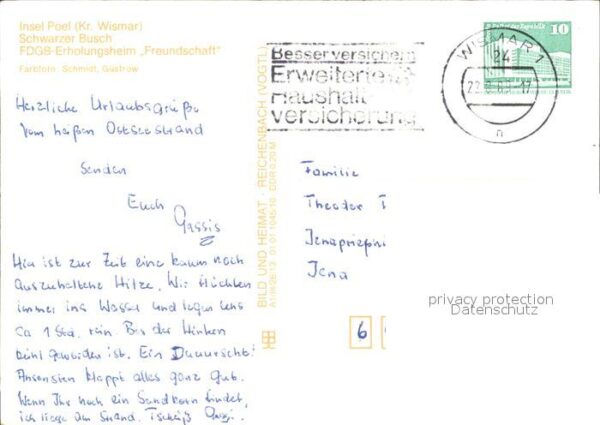 Insel Poel (Kr. Wismar)
Schwarzer Busch
FDGB-Erholungsheim „Freundschaft"
Farbfoto: Schmidt, Güstrow
Besser versichern
Erweiterte
Haushalt
versicherung
WISMAR 1
24
22. 83-17
n
10
Herzliche Urlaubsgrüße
vom heißen Ostseestrand
Senden
Euch
Gassis
Hier ist zur Zeit eine kaum noch
auszuhaltende Hitze. Wir flüchten
immer ins Wasser und legen uns
ca 1 Std. rein. Bis der Hintern
kühl geworden ist. Ein Duuurscht!
Ansonsten klappt alles ganz gut.
Wenn Ihr noch ein Sandkorn findet,
ich liege am Strand. Tschüß
BILD UND HEIMAT · REICHENBACH (VOGTL)
A1/IR2E/13 01 01 1045/10 DDR 0,20 M
Familie
Theodor T
Jena
6
privacy protection
Datenschutz